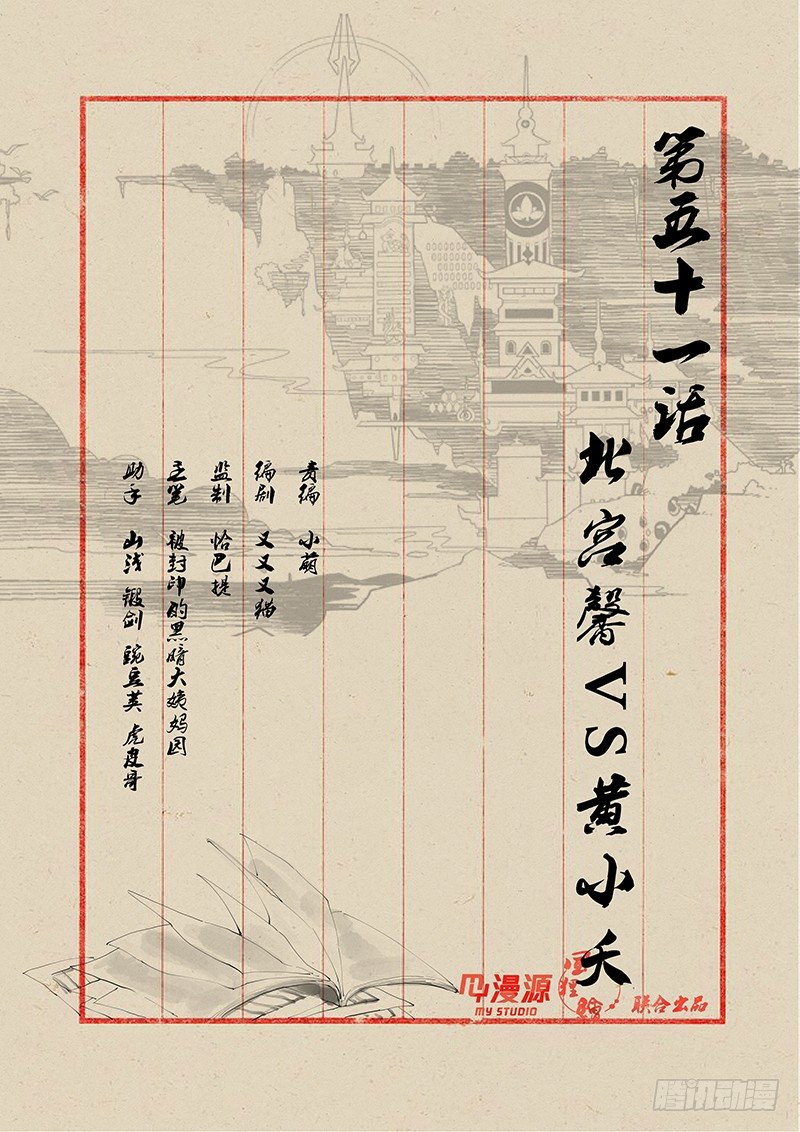 第五十一话
北宫馨VS黄小夭
责编 小萌
编剧 又又又猫
监制 恰巴提
主笔 被封印的黑暗大姨妈园
助手 山浅 锻剑 豌豆荚 虎皮哥
漫源
MY STUDIO
联合出品
腾讯动漫